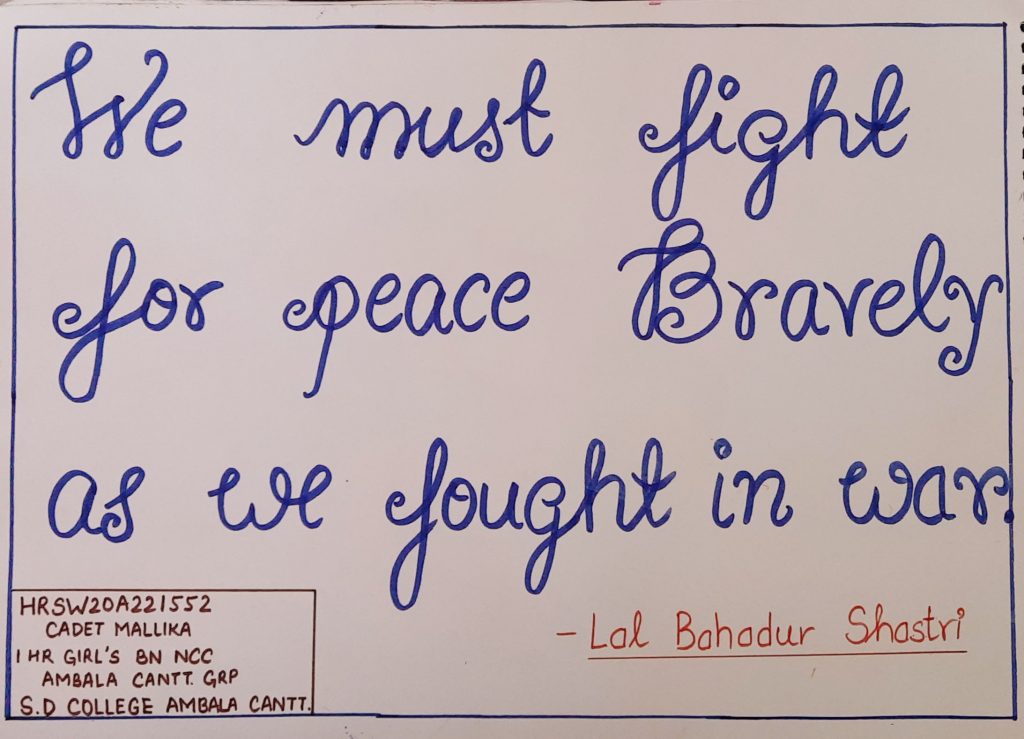 We must fight
for peace Bravely
as we fought in war.
- Lal Bahadur Shastri
HRSW20A221552
CADET MALLIKA
1 HR GIRL'S BN NCC
AMBALA CANTT. GRP
S.D COLLEGE AMBALA CANTT.